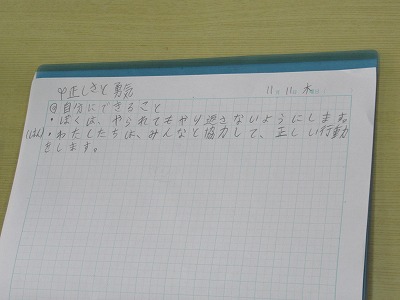 中正しさと勇気
11月 11日 木
◎自分にできること
・ぼくは、やられてもやり返さないようにします。
(1はん)・わたしたちは、みんなと協力して、正しい行動
をします。